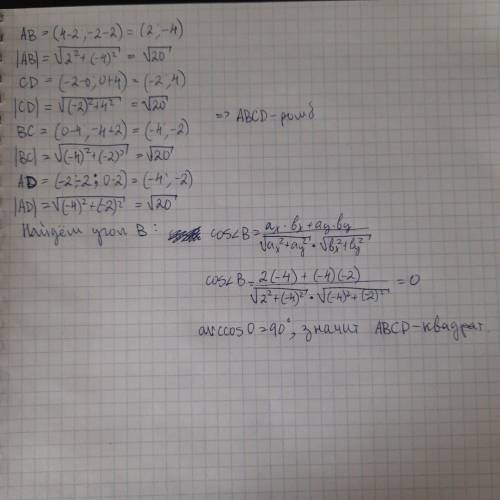 AB = (4-2; -2-2) = (2; -4)
|AB| = √(2²+(-4)²) = √20
CD = (-2-0; 0+4) = (-2; 4)
|CD| = √((-2)²+4²) = √20
=> ABCD - ромб
BC = (0-4; -4+2) = (-4; -2)
|BC| = √((-4)²+(-2)²) = √20
AD = (-2-2; 0-2) = (-4; -2)
|AD| = √((-4)²+(-2)²) = √20
Найдём угол B:
cos∠B = (aₓ·bₓ+aᵧ·bᵧ)/(√(aₓ²+aᵧ²)·√(bₓ²+bᵧ²))
cos∠B = (2(-4)+(-4)(-2))/(√(2²+(-4)²)·√((-4)²+(-2)²)) = 0
arccos 0 = 90°, значит ABCD-квадрат